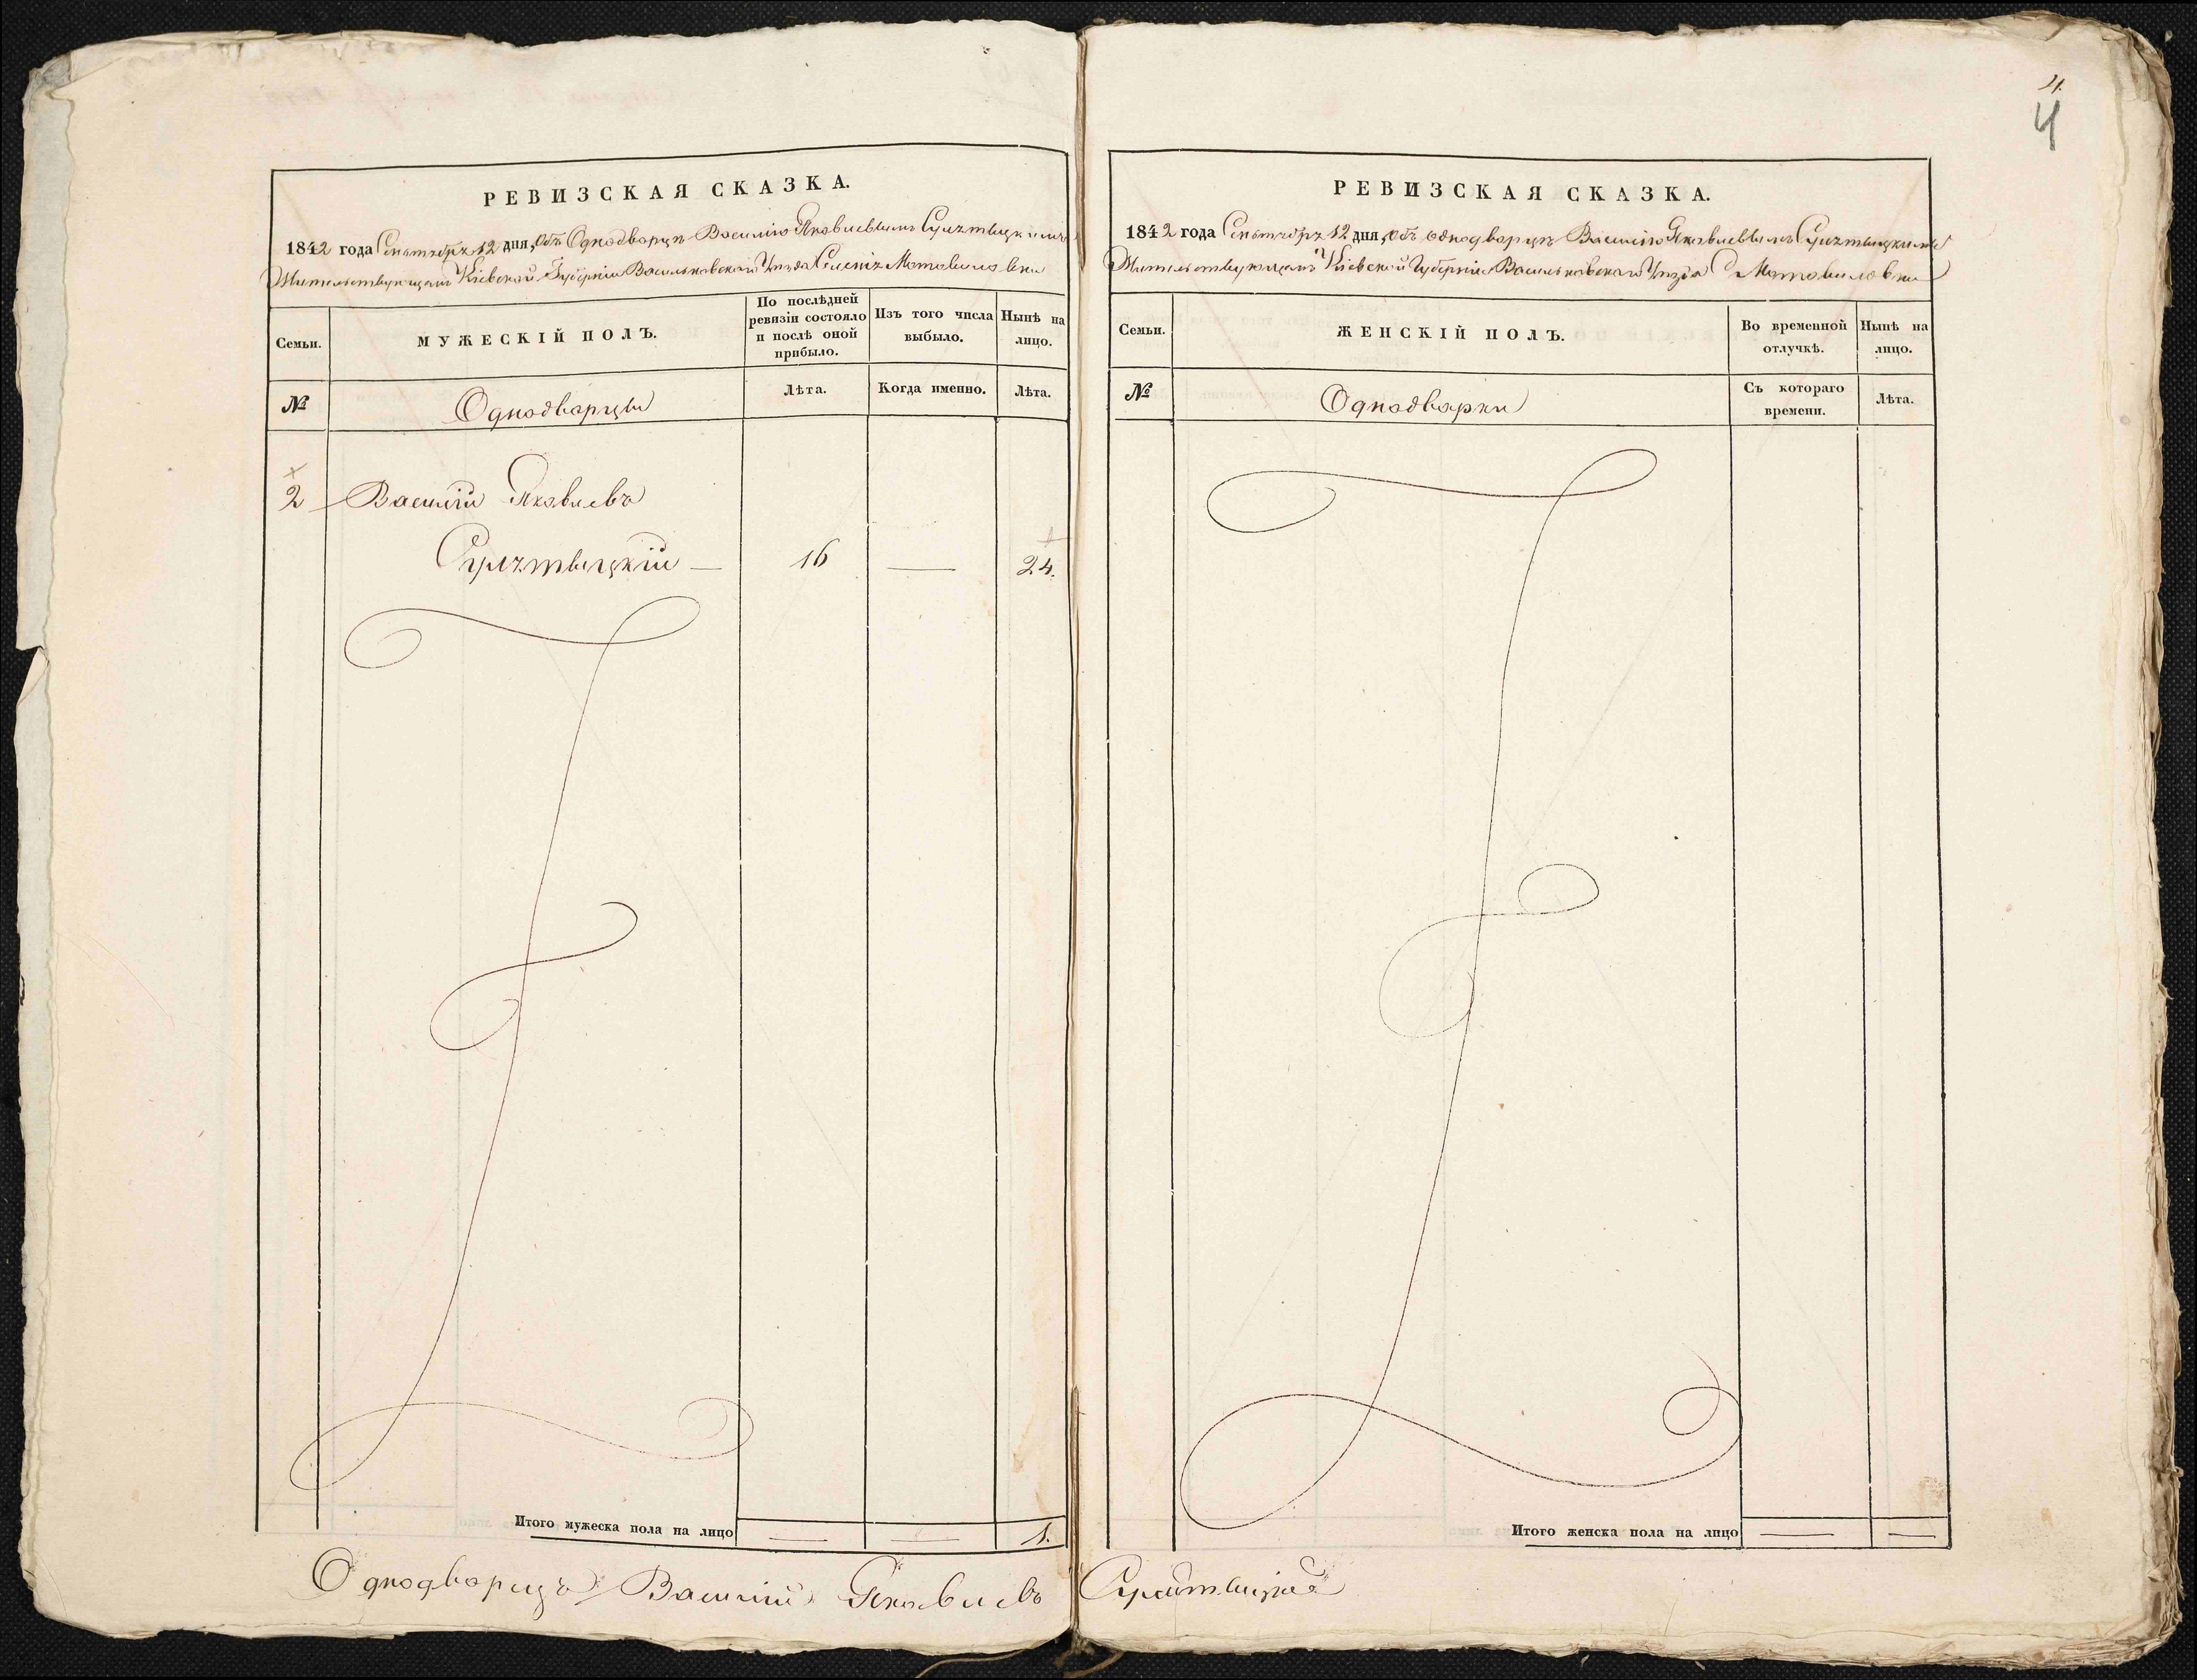 4.
4
РЕВИЗСКАЯ СКАЗКА.
1842 года Сентября 12 дня, Объ Однодворцѣ Василію Яковлевымъ
Жительствующемъ Кіевской Губерніи Васильковскаго Уѣзда Селенія Мотовиловки
Семьи.
МУЖЕСКІЙ ПОЛЪ.
По послѣдней
ревизіи состояло
и послѣ оной
прибыло.
Изъ того числа
выбыло.
Нынѣ на
лицо.
№
Однодворцы
Лѣта.
Когда именно.
Лѣта.
2
Василій Яковлевъ
16
—
24.
Итого мужеска пола на лицо
—
—
1.
Однодворецъ Василій Яковлевъ
РЕВИЗСКАЯ СКАЗКА.
1842 года Сентября 12 дня, объ однодворцѣ Василію Яковлевымъ
Жительствующемъ Кіевской Губерніи Васильковскаго Уѣзда С Мотовиловки
Семьи.
ЖЕНСКІЙ ПОЛЪ.
Во временной
отлучкѣ.
Нынѣ на
лицо.
№
Однодворки
Съ котораго
времени.
Лѣта.
Итого женска пола на лицо
—
—